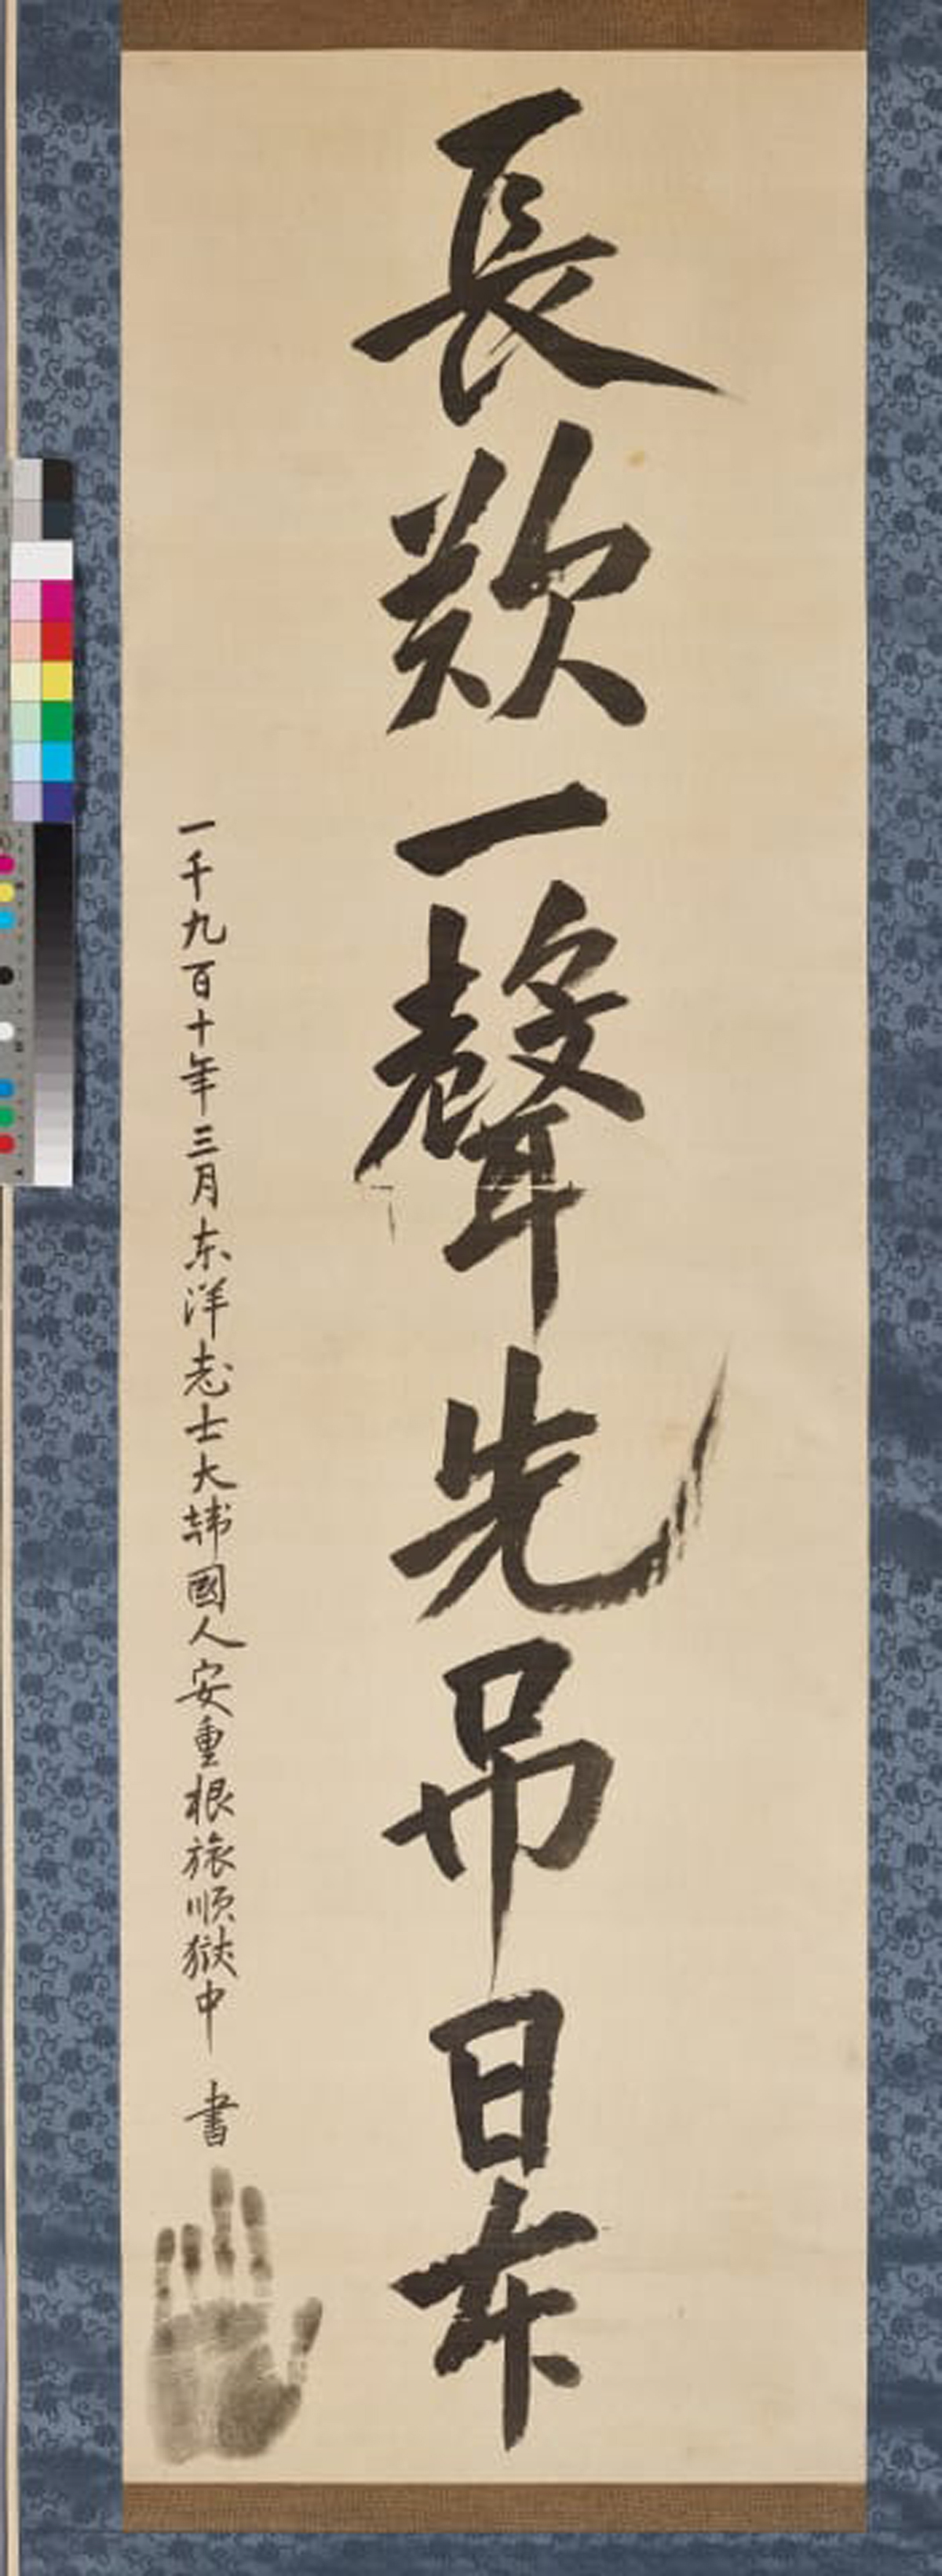 長歎一聲先吊日本
一千九百十年三月东洋志士大韓國人安重根旅順獄中 書